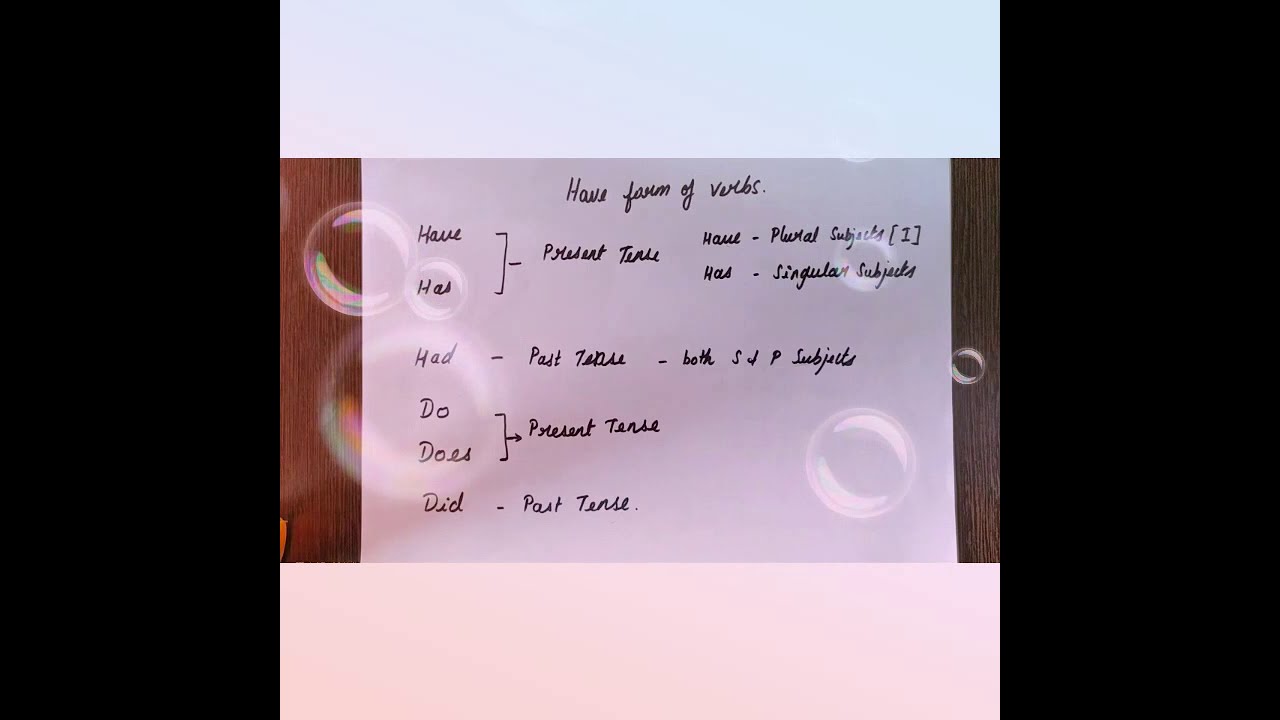 Have form of verbs.
Have
Has
Present Tense
Have - Plural Subjects [I]
Has - Singular Subjects
Had - Past Tense - both S & P Subjects
Do
Does
Present Tense
Did - Past Tense.